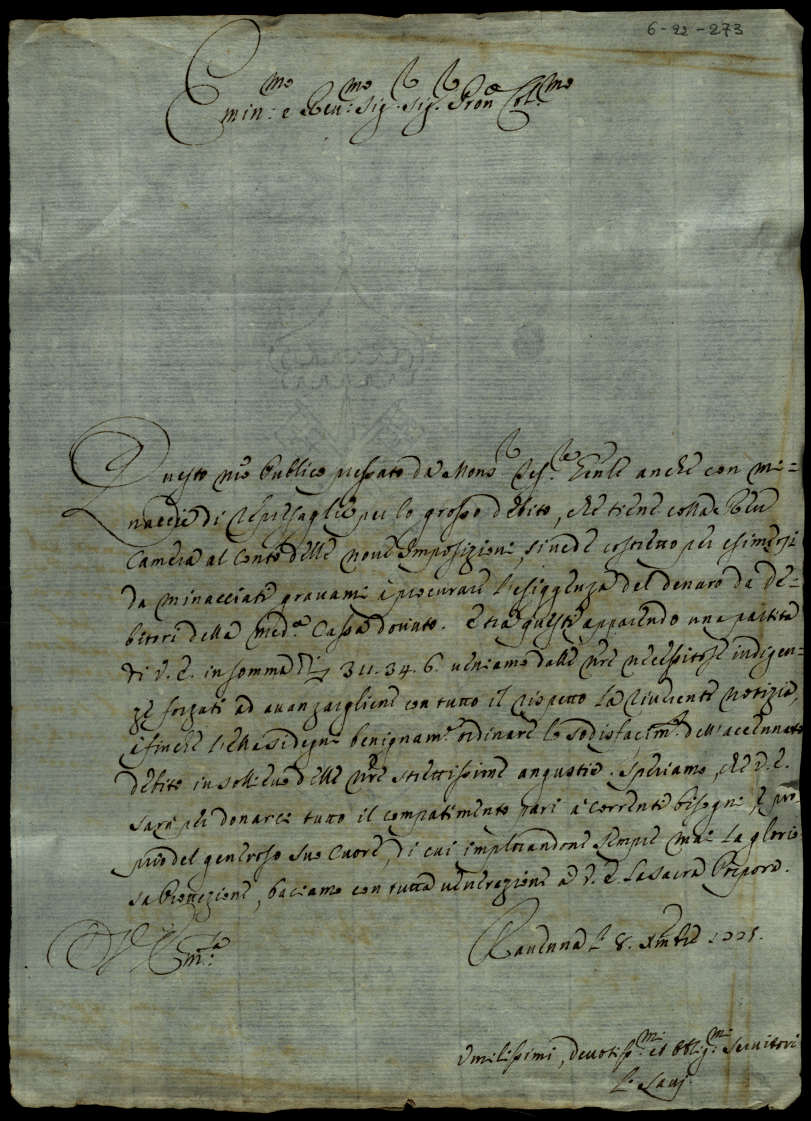 6-22-273
Emin:mo e Reu:mo Sig.r Sig.r Pron Col:mo
Questo nro Publico pressato da Mons.r Tes.re Gentle anche con mi=
naccie di represaglie per lo grosso debito, che tiene colla Reu
Camera al conto delle nove Imposizioni, si uede costretto per esimersi
da minacciati grauami à procurare l'esiggenza del denaro da de=
bitori della med.a Cassa douuto. E trà questi apparendo una partita
di V.E. in somma di 311.34.6. ueniamo dalle nre necessitose indigen=
ze forzati ad auanzargliene con tutto il rispetto la riuerente notizia,
à finche l'E.V. si degni benignam.te ordinare lo sodisfacim.to dell'accennato
debito in sollieuo delle nre strettissime angustie. Speriamo, che V.E.
sarà per donarci tutto il compatimento pari a correnti bisogni, e pro=
prio del generoso suo Cuore, di cui implorandone sempre mai la glorio=
sa Protezione, baciamo con tutta uenerazione a V.E. la sacra Porpora.
Rauenna li 8. Xmbre
V. Em:za
Vmilissimi, deuotiss:mi et obblig:mi Seruitori
Li Sauj